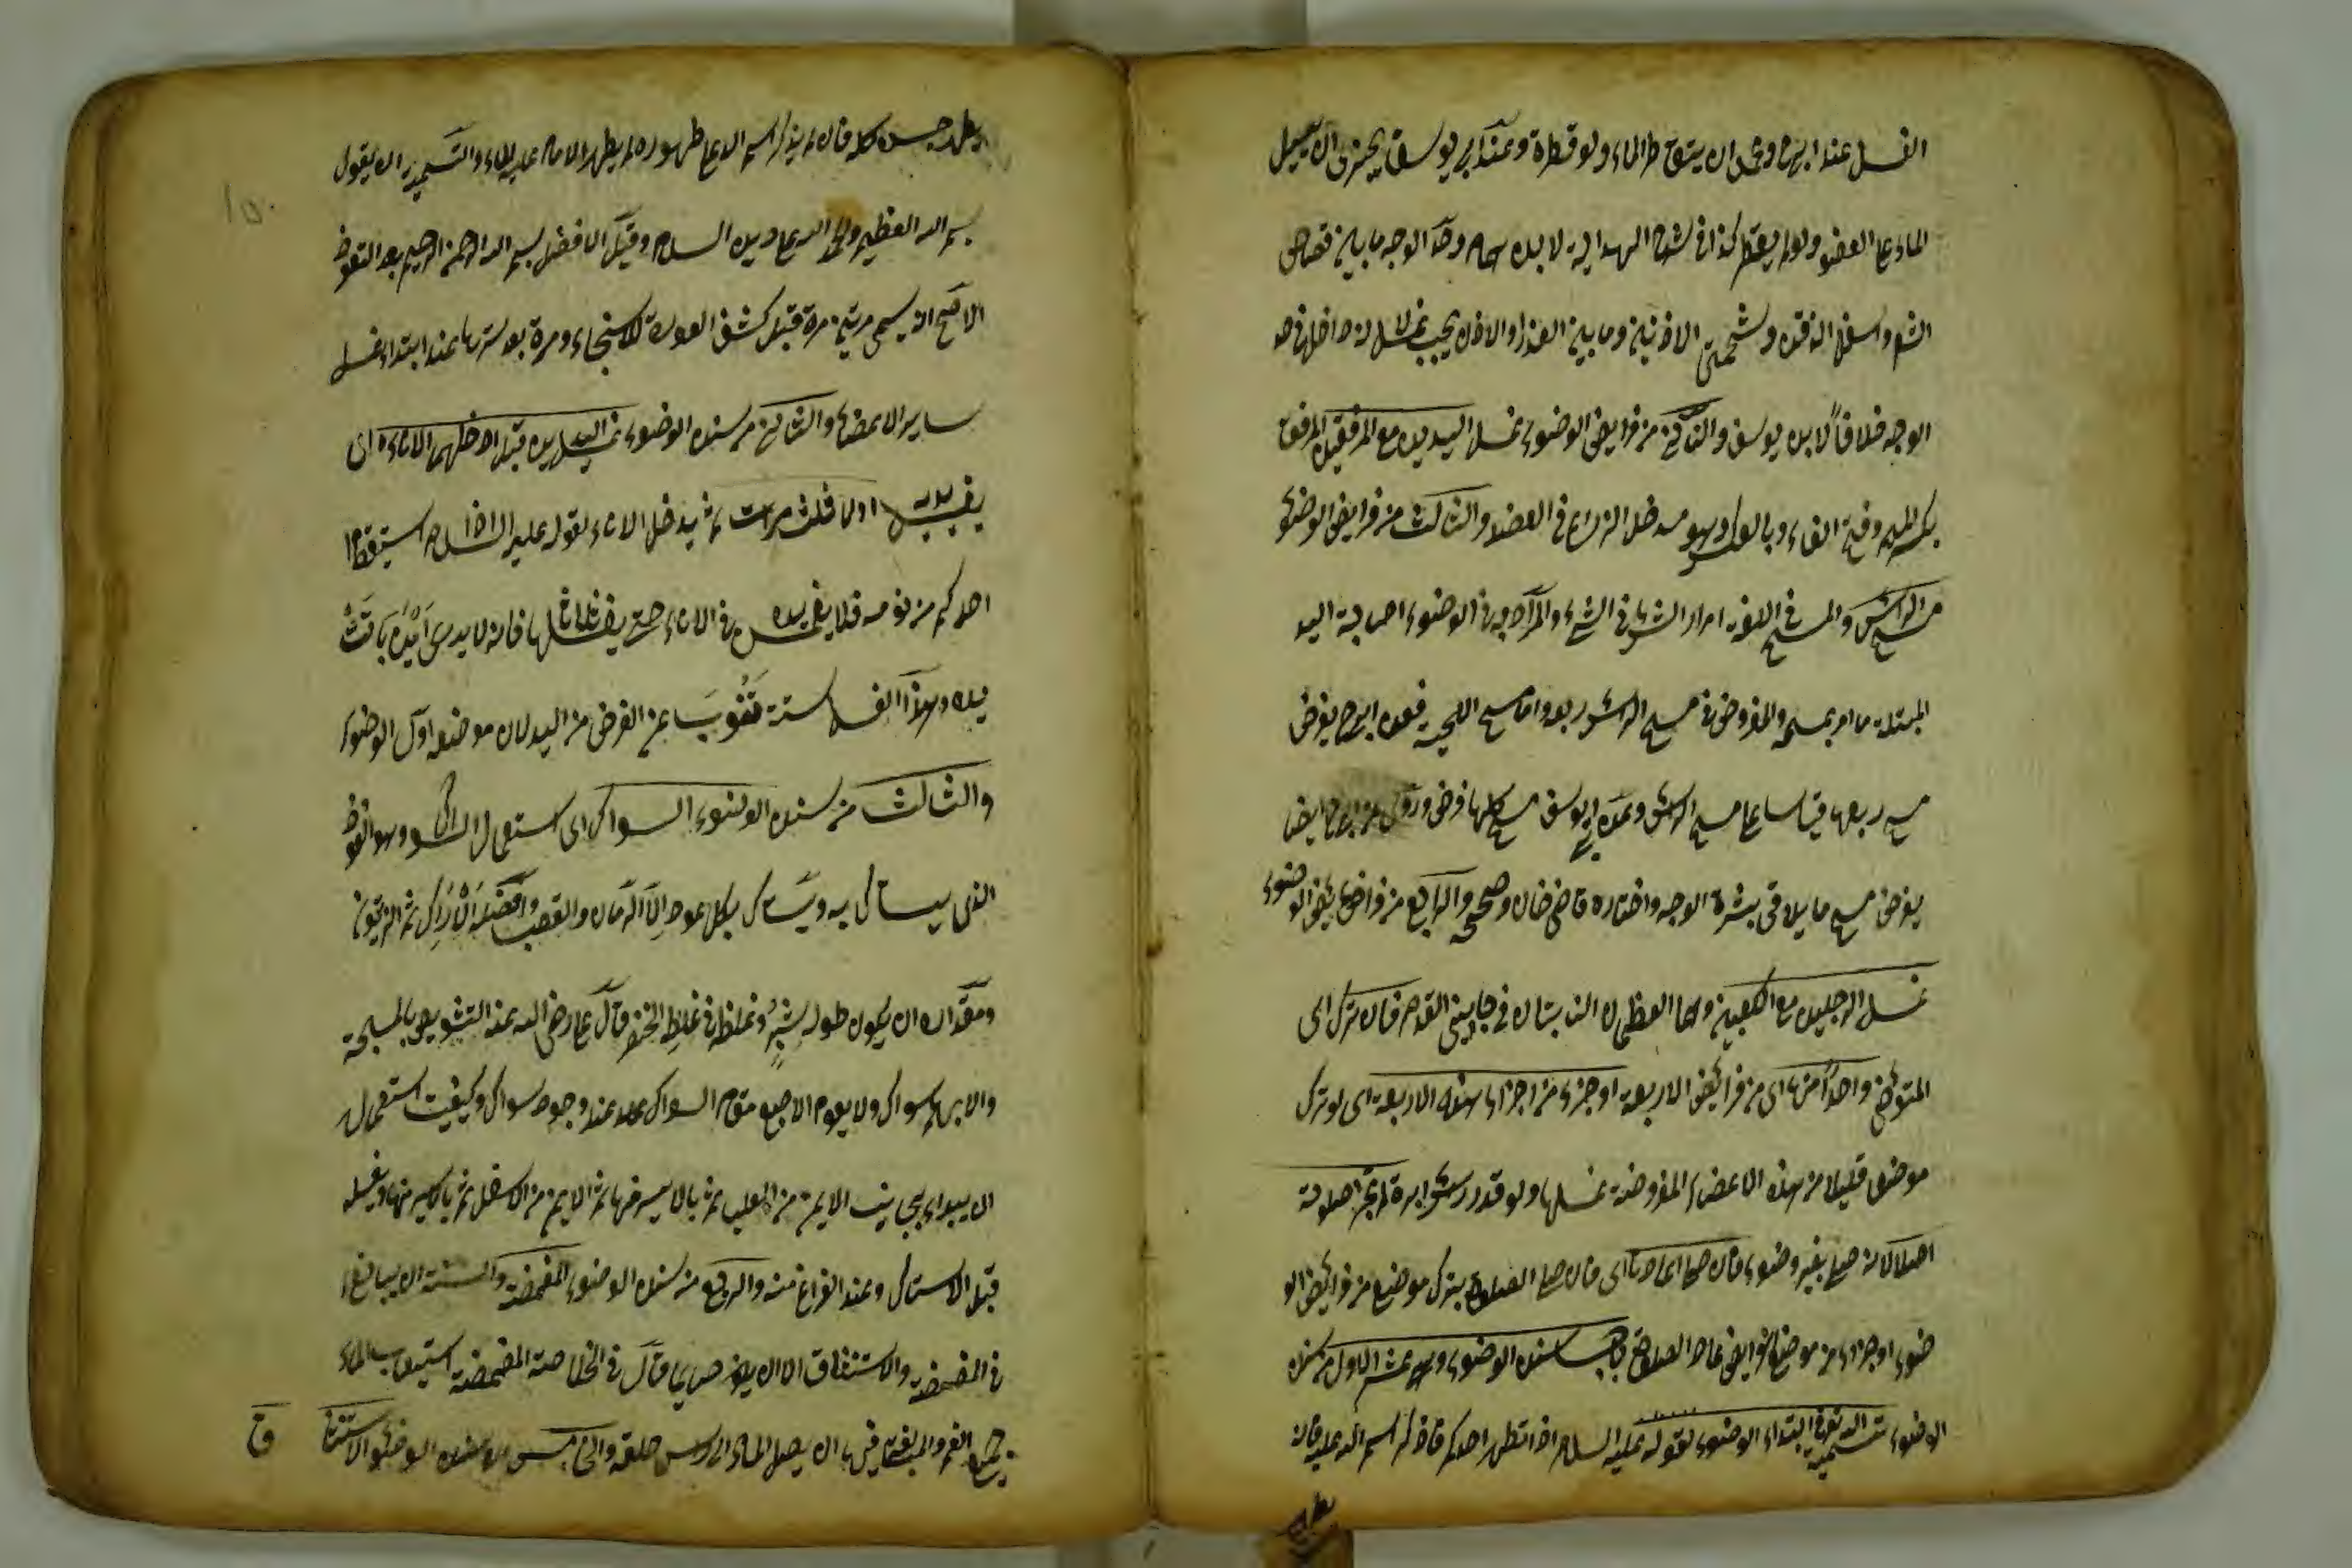 الغسل عند ابيح ومحمد ان يتقاطر الماء ولو قطرة وعند ابي يوسف يجزى ان يسيل
الماء على العضو ولو لم يقطر كذا فى شرح الهداية لابن همام وحد الوجه ما بين قصاص
الشعر واسفل الذقن وشحمتى الاذنين وما بين العذار والاذن يجب غسله لانه داخل فى حد
الوجه خلافا لابى يوسف والثانى من فرايض الوضوء غسل اليدين مع المرفقين المرفق
بكسر الميم وفتح الفاء وبالعكس وهو مدخل الذراع فى العضد والثالث من فرايض الوضوء
مسح الرأس والمسح فى اللغة امرار الشئ فى الشئ والمراد به فى الوضوء اصابة اليد
المبتلة ما امر بمسحه والمفروض فى مسح الرأس ربعه واما مسح اللحية فعند ابيح يفرض
مسح ربعها قياسا على مسح الرأس وعند ابى يوسف مسح كلها فرض وروى عن ابيح ايضا
يفرض مسح ما يلاقى بشرة الوجه واختاره قاضى خان وصححه والرابع من فرايض الوضوء
غسل الرجلين مع الكعبين وهما العظمان الناتيان فى جانبى القدم فان ترك اى
المتوضئ واحدا منها اى من فرائض الاربعة او جزء من اجزاء هذه الاربعة اى لو ترك
موضعا قليلا من هذه الاعضاء المفروضة غسلها ولو قدر رأس ابرة لم يجز صلوته
اصلا لانه صلى بغير وضوء فان صلى اعادها اى فان صلى الصلوة بترك موضع من فرائض الو
ضوء او جزء من موضع الفرايض اعاد الصلوة باب سنن الوضوء وهى عشر الاول من سنن
الوضوء تسمية الله تعالى فى ابتداء الوضوء لقوله عليه السلام اذا تطهر احدكم فاذكر اسم الله عليه فانه
يطهر
يطهر جسده كله فان لم يذكر اسم الله على طهوره لم يطهر الا ما مر عليه الماء والتسمية ان يقول
بسم الله العظيم والحمد لله على دين السلام وقيل الافضل بسم الله الرحمن الرحيم بعد التعوذ
الاصح ان يسمى مرتين مرة قبل كشف العورة للاستنجاء ومرة بعد سترها عند ابتداء غسل
ساير الاعضاء والثانى من سنن الوضوء غسل اليدين قبل ادخالهما الاناء اى
يغسل يديه اولا ثلث مرات ثم يدخل الاناء لقوله عليه السلام اذا استيقظ
احدكم من نومه فلا يغمس يده فى الاناء حتى يغسلها ثلاثا فانه لا يدرى اين باتت
يده وهذا الغسل سنة تنوب عن الفرض من اليد لان موضعه اول الوضوء
والثالث من سنن الوضوء السواك اى استعمال السواك وهو العود
الذى يستاك به ويستاك بكل عود الا الرمان والقصب وافضله الاراك ثم الزيتون
ومقداره ان يكون طوله شبرا وغلظه فى غلظ الخنصر قال على رضى الله عنه التشويص بالمسبحة
والابهام سواك ولا يقوم الاصبع مقام السواك عند وجود سواك وكيفيت استعماله
ان يبداء بجانب الايمن من العليا ثم بالايسر منها ثم الايمن من الاسفل ثم بالايسر منها ويغسله
قبل الاستياك وعند الفراغ منه والرابع من سنن الوضوء المضمضة والسنة ان يبالغ
فى المضمضة والاستنشاق الا ان يكون صايما قال فى الخلاصة المضمضة استيعاب الماء
جميع الفم والمبالغة فيها ان يصل الماء الى رأس حلقه والخامس من سنن الوضوء الاستنشا
ق